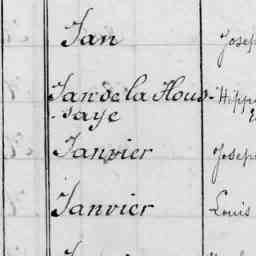 Jan Josep
Jan de la Hous- Hipp
saye
Janvier Josep
Janvier Louis